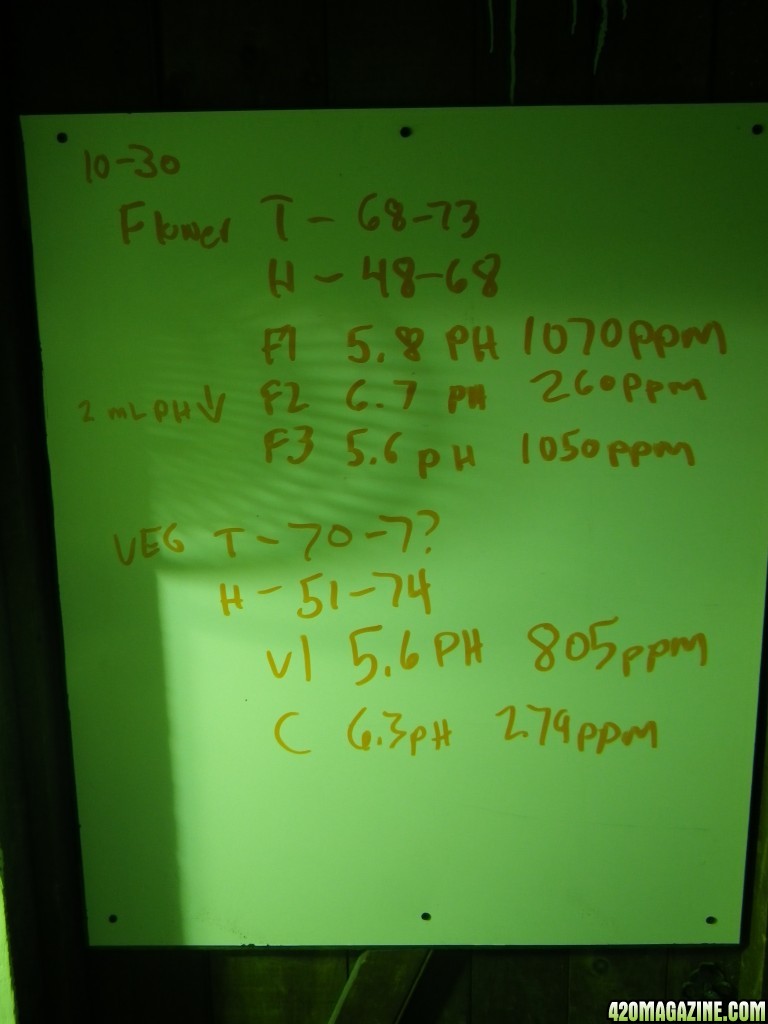 10-30
Flower T - 68-73
H - 48-68
F1 5.8 PH 1070ppm
2 mL PH↓ F2 6.7 PH 260ppm
F3 5.6 pH 1050ppm
VEG T - 70-7?
H - 51-74
V1 5.6 PH 805ppm
C 6.3pH 279ppm
420MAGAZINE.COM